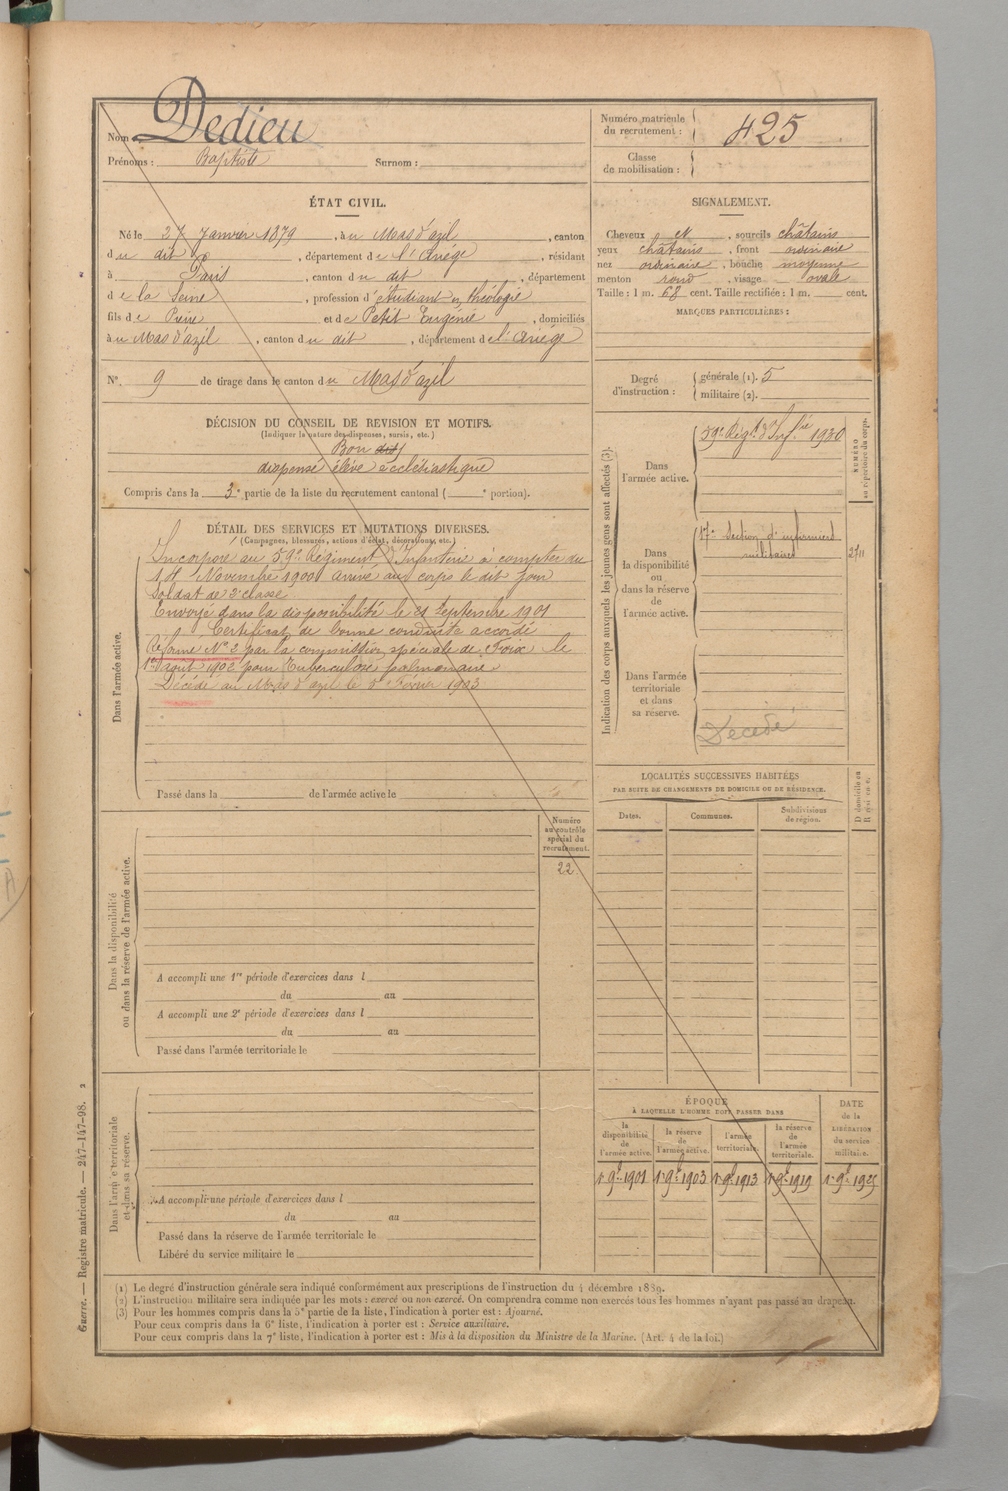 Nom Dedieu
Prénoms : Baptiste Surnom :
Numéro matricule du recrutement : 425
Classe de mobilisation :
ÉTAT CIVIL.
Né le 27 Janvier 1879, à u Mas d'azil, canton
d u dit, département de l'Ariége, résidant
à Paris, canton d u dit, département
d e la Seine, profession d'étudiant en théologie
fils d e Pierre et de Petit Eugénie, domiciliés
à u Mas d'azil, canton d u dit, département de l'Ariége
N°. 9 de tirage dans le canton d u Mas d'azil
SIGNALEMENT.
Cheveux N, sourcils châtains
yeux châtains, front ordinaire
nez ordinaire, bouche moyenne
menton rond, visage ovale
Taille : 1 m. 68 cent. Taille rectifiée : 1 m. cent.
MARQUES PARTICULIÈRES :
Degré d'instruction : générale (1). 5
militaire (2).
DÉCISION DU CONSEIL DE REVISION ET MOTIFS.
(Indiquer la nature des dispenses, sursis, etc.)
Bon
dispensé élève ecclésiastique
Compris dans la 3e partie de la liste du recrutement cantonal ( e portion).
DÉTAIL DES SERVICES ET MUTATIONS DIVERSES.
(Campagnes, blessures, actions d'éclat, décorations, etc.)
Dans l'armée active.
Incorporé au 59e Régiment d'Infanterie à compter du
14 Novembre 1900 arrivé au corps le dit jour
Soldat de 2e classe
Envoyé dans la disponibilité le 21 Septembre 1901
Certificat de bonne conduite accordé
Réformé N° 2 par la commission spéciale de Foix le
1er août 1902 pour Tuberculose pulmonaire
Décédé au Mas d'azil le Février 1903
Passé dans la de l'armée active le
Indication des corps auxquels les jeunes gens sont affectés (3).
NUMÉRO au répertoire du corps.
Dans l'armée active.
59e Régt d'Inf.rie 1930
Dans la disponibilité ou dans la réserve de l'armée active.
17e Section d'infirmiers
militaires
2711
Dans l'armée territoriale et dans sa réserve.
Décédé
LOCALITÉS SUCCESSIVES HABITÉES
PAR SUITE DE CHANGEMENTS DE DOMICILE OU DE RÉSIDENCE.
Dates. Communes. Subdivisions de région. D domicile ou R résidence.
Dans la disponibilité ou dans la réserve de l'armée active.
Numéro au contrôle spécial du recrutement.
22
A accompli une 1re période d'exercices dans l
du au
A accompli une 2e période d'exercices dans l
du au
Passé dans l'armée territoriale le
Dans l'armée territoriale et dans sa réserve.
A accompli une période d'exercices dans l
du au
Passé dans la réserve de l'armée territoriale le
Libéré du service militaire le
ÉPOQUE
À LAQUELLE L'HOMME DOIT PASSER DANS
la disponibilité de l'armée active.
la réserve de l'armée active.
l'armée territoriale.
la réserve de l'armée territoriale.
DATE de la LIBÉRATION du service militaire.
1er 9bre 1901 1er 9bre 1903 1er 9bre 1913 1er 9bre 1919 1er 9bre 1925
(1) Le degré d'instruction générale sera indiqué conformément aux prescriptions de l'instruction du 4 décembre 1889.
(2) L'instruction militaire sera indiquée par les mots : exercé ou non exercé. On comprendra comme non exercés tous les hommes n'ayant pas passé au drapeau.
(3) Pour les hommes compris dans la 5e partie de la liste, l'indication à porter est : Ajourné.
Pour ceux compris dans la 6e liste, l'indication à porter est : Service auxiliaire.
Pour ceux compris dans la 7e liste, l'indication à porter est : Mis à la disposition du Ministre de la Marine. (Art. 4 de la loi.)
Guerre. — Registre matricule. — 247-147-98. 2